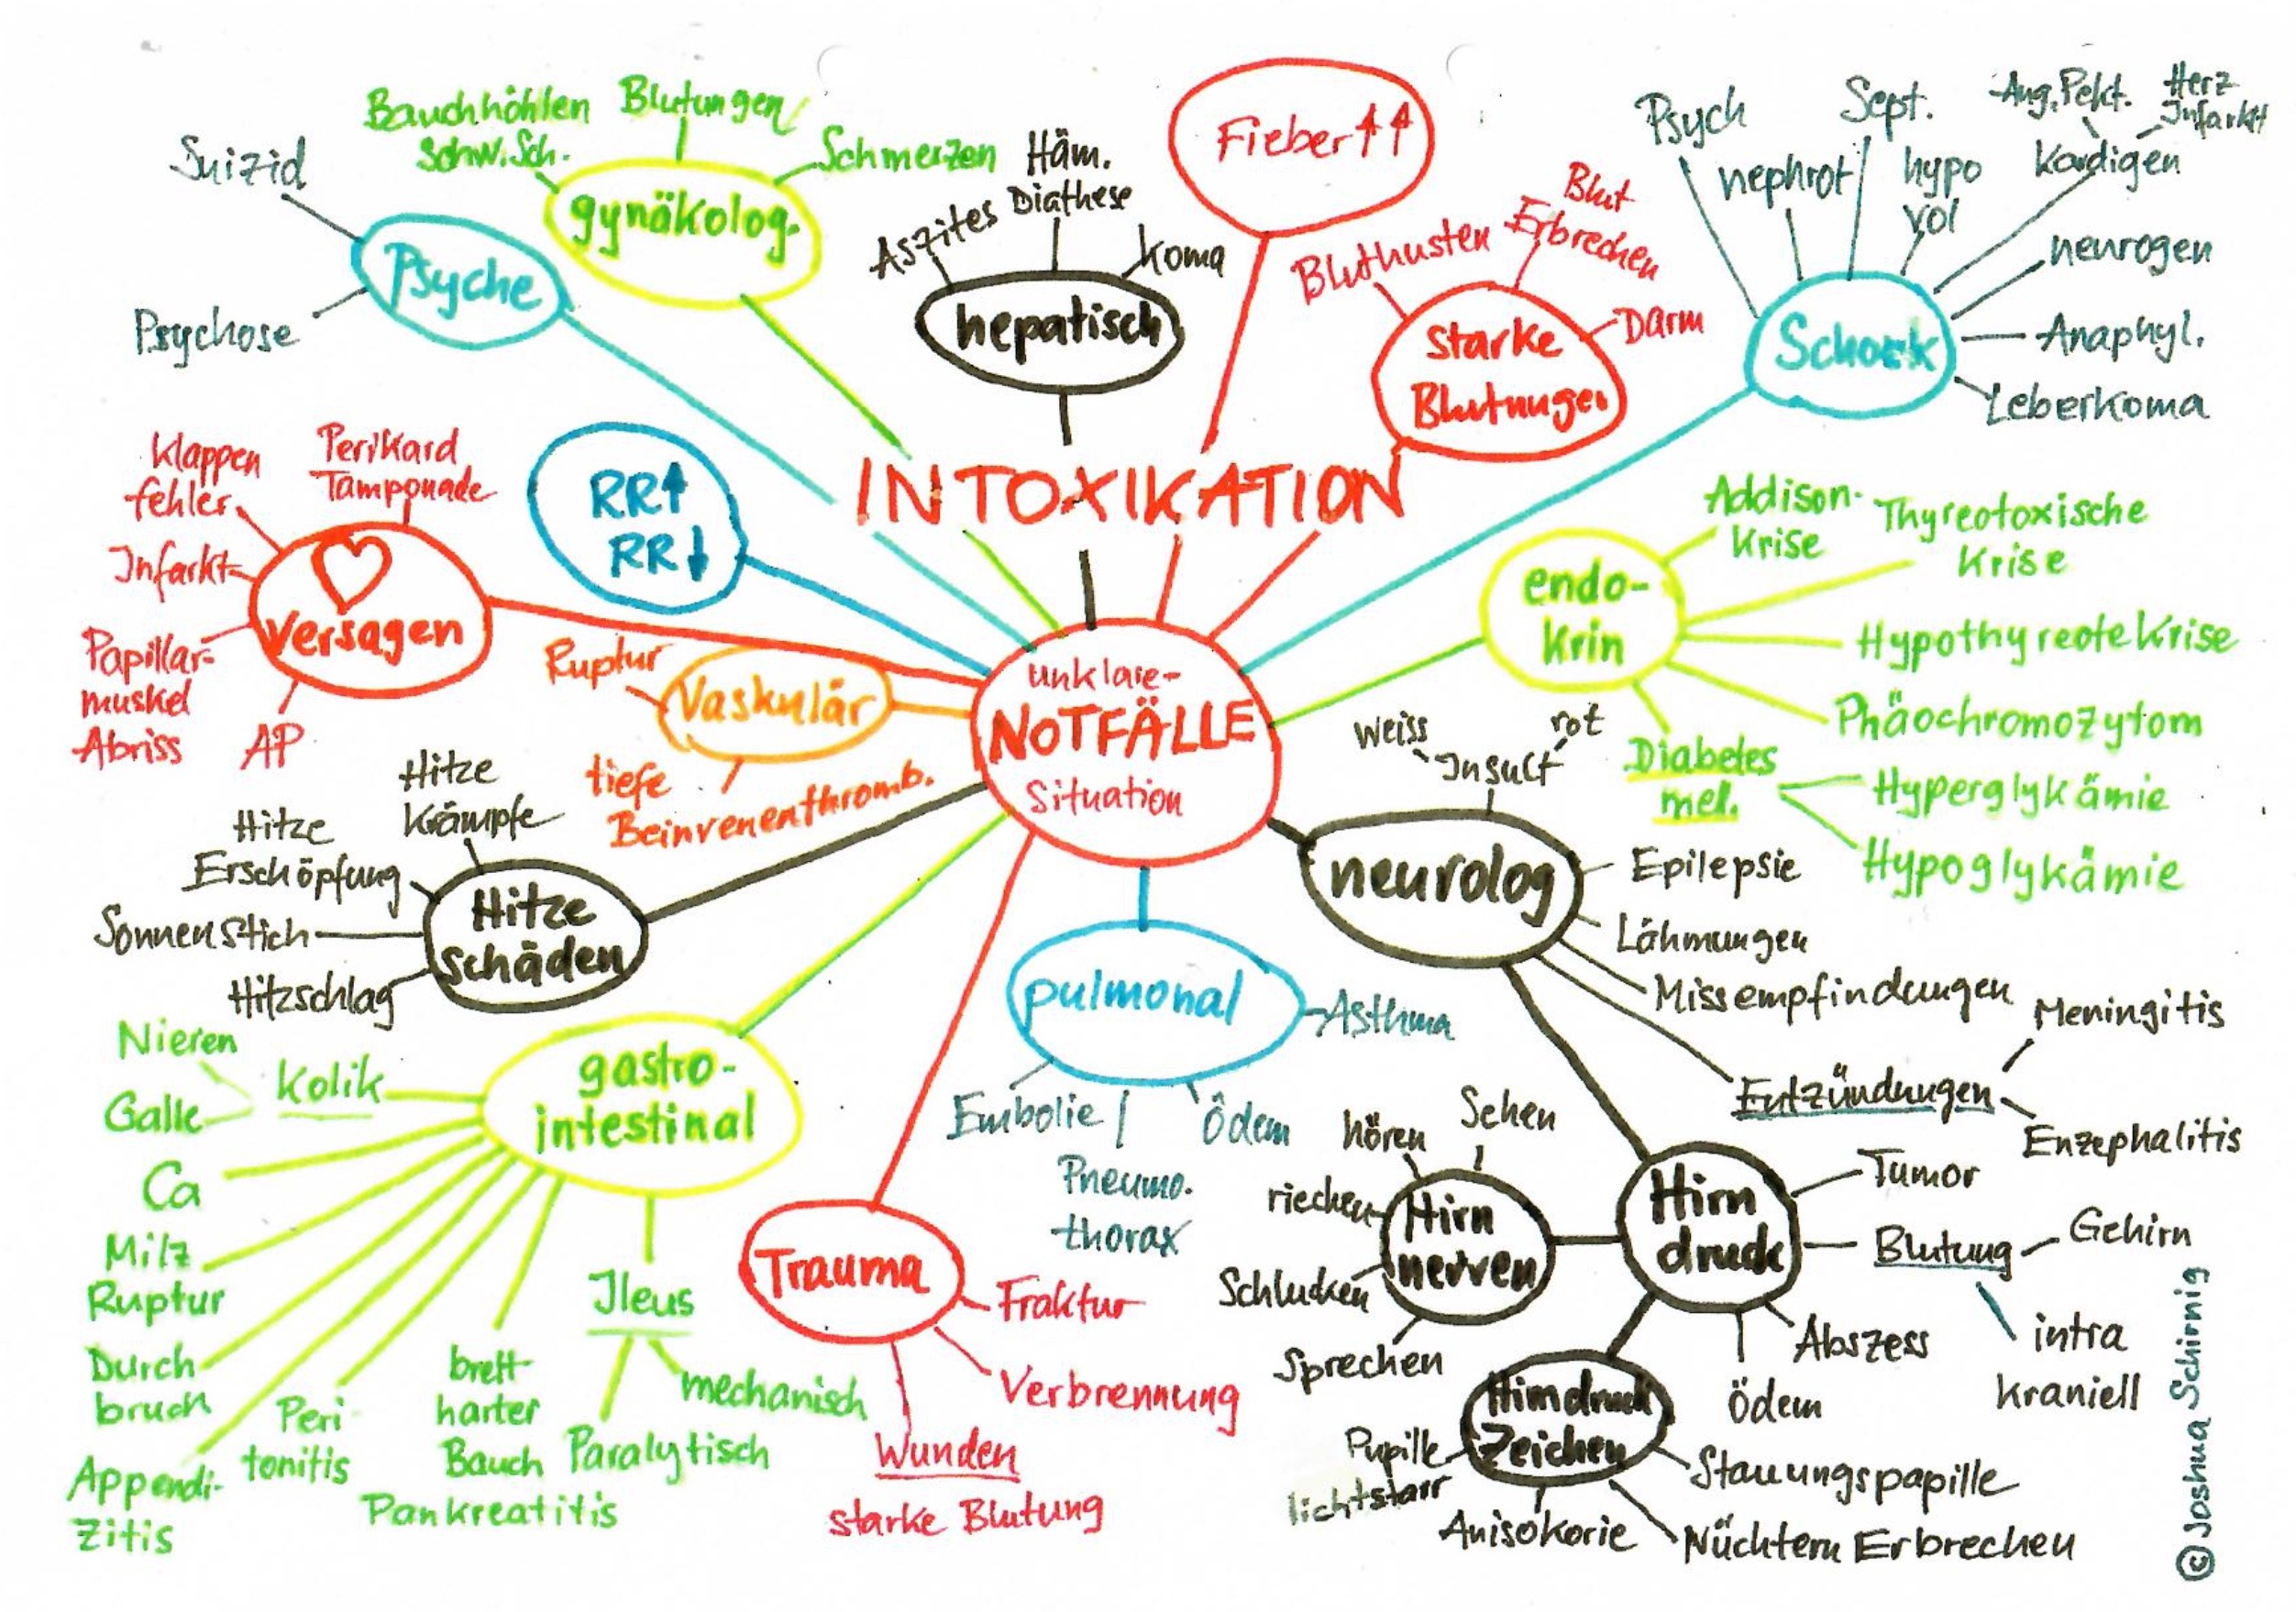 Suizid
Psyche
Psychose
Bauchhöhlen
Schw.Sch.
Blutungen
Schmerzen
gynäkolog.
Aszites
Häm.
Diathese
Koma
hepatisch
Fieber↑↑
Bluthusten
Blut
Erbrechen
Darm
starke
Blutungen
Psych
nephrot
Sept.
hypo
vol
Ang.Pekt.
Herz
Infarkt
Kardigen
neurogen
Anaphyl.
Leberkoma
Schock
INTOXIKATION
RR↑
RR↓
Klappen
fehler
Perikard
Tamponade
Infarkt
Papillar-
muskel
Abriss
AP
Versagen
Ruptur
Vaskulär
tiefe
Beinvenenthromb.
unklare-
NOTFÄLLE
Situation
endo-
krin
Addison-
Krise
Thyreotoxische
Krise
Hypothyreote Krise
Phäochromozytom
Diabetes
mel.
Hyperglykämie
Hypoglykämie
Hitze
Krämpfe
Hitze
Erschöpfung
Sonnenstich
Hitzschlag
Hitze
schäden
Weiss
rot
Insult
neurolog
Epilepsie
Lähmungen
Missempfindungen
Entzündungen
Meningitis
Enzephalitis
pulmonal
Asthma
Embolie
Ödem
Pneumo.
thorax
gastro-
intestinal
Nieren
Galle
Kolik
Ca
Milz
Ruptur
Durch
bruch
Appendi-
zitis
Peri
tonitis
brett
harter
Bauch
Pankreatitis
Ileus
Paralytisch
mechanisch
Trauma
Fraktur
Verbrennung
Wunden
starke Blutung
Hirn
druck
Tumor
Blutung
Gehirn
intra
kraniell
Abszess
Ödem
Hirn
nerven
Sehen
hören
riechen
Schlucken
Sprechen
Hirndruck
Zeichen
Pupille
lichtstarr
Anisokorie
Nüchtern Erbrechen
Stauungspapille
© Joshua Schirnig